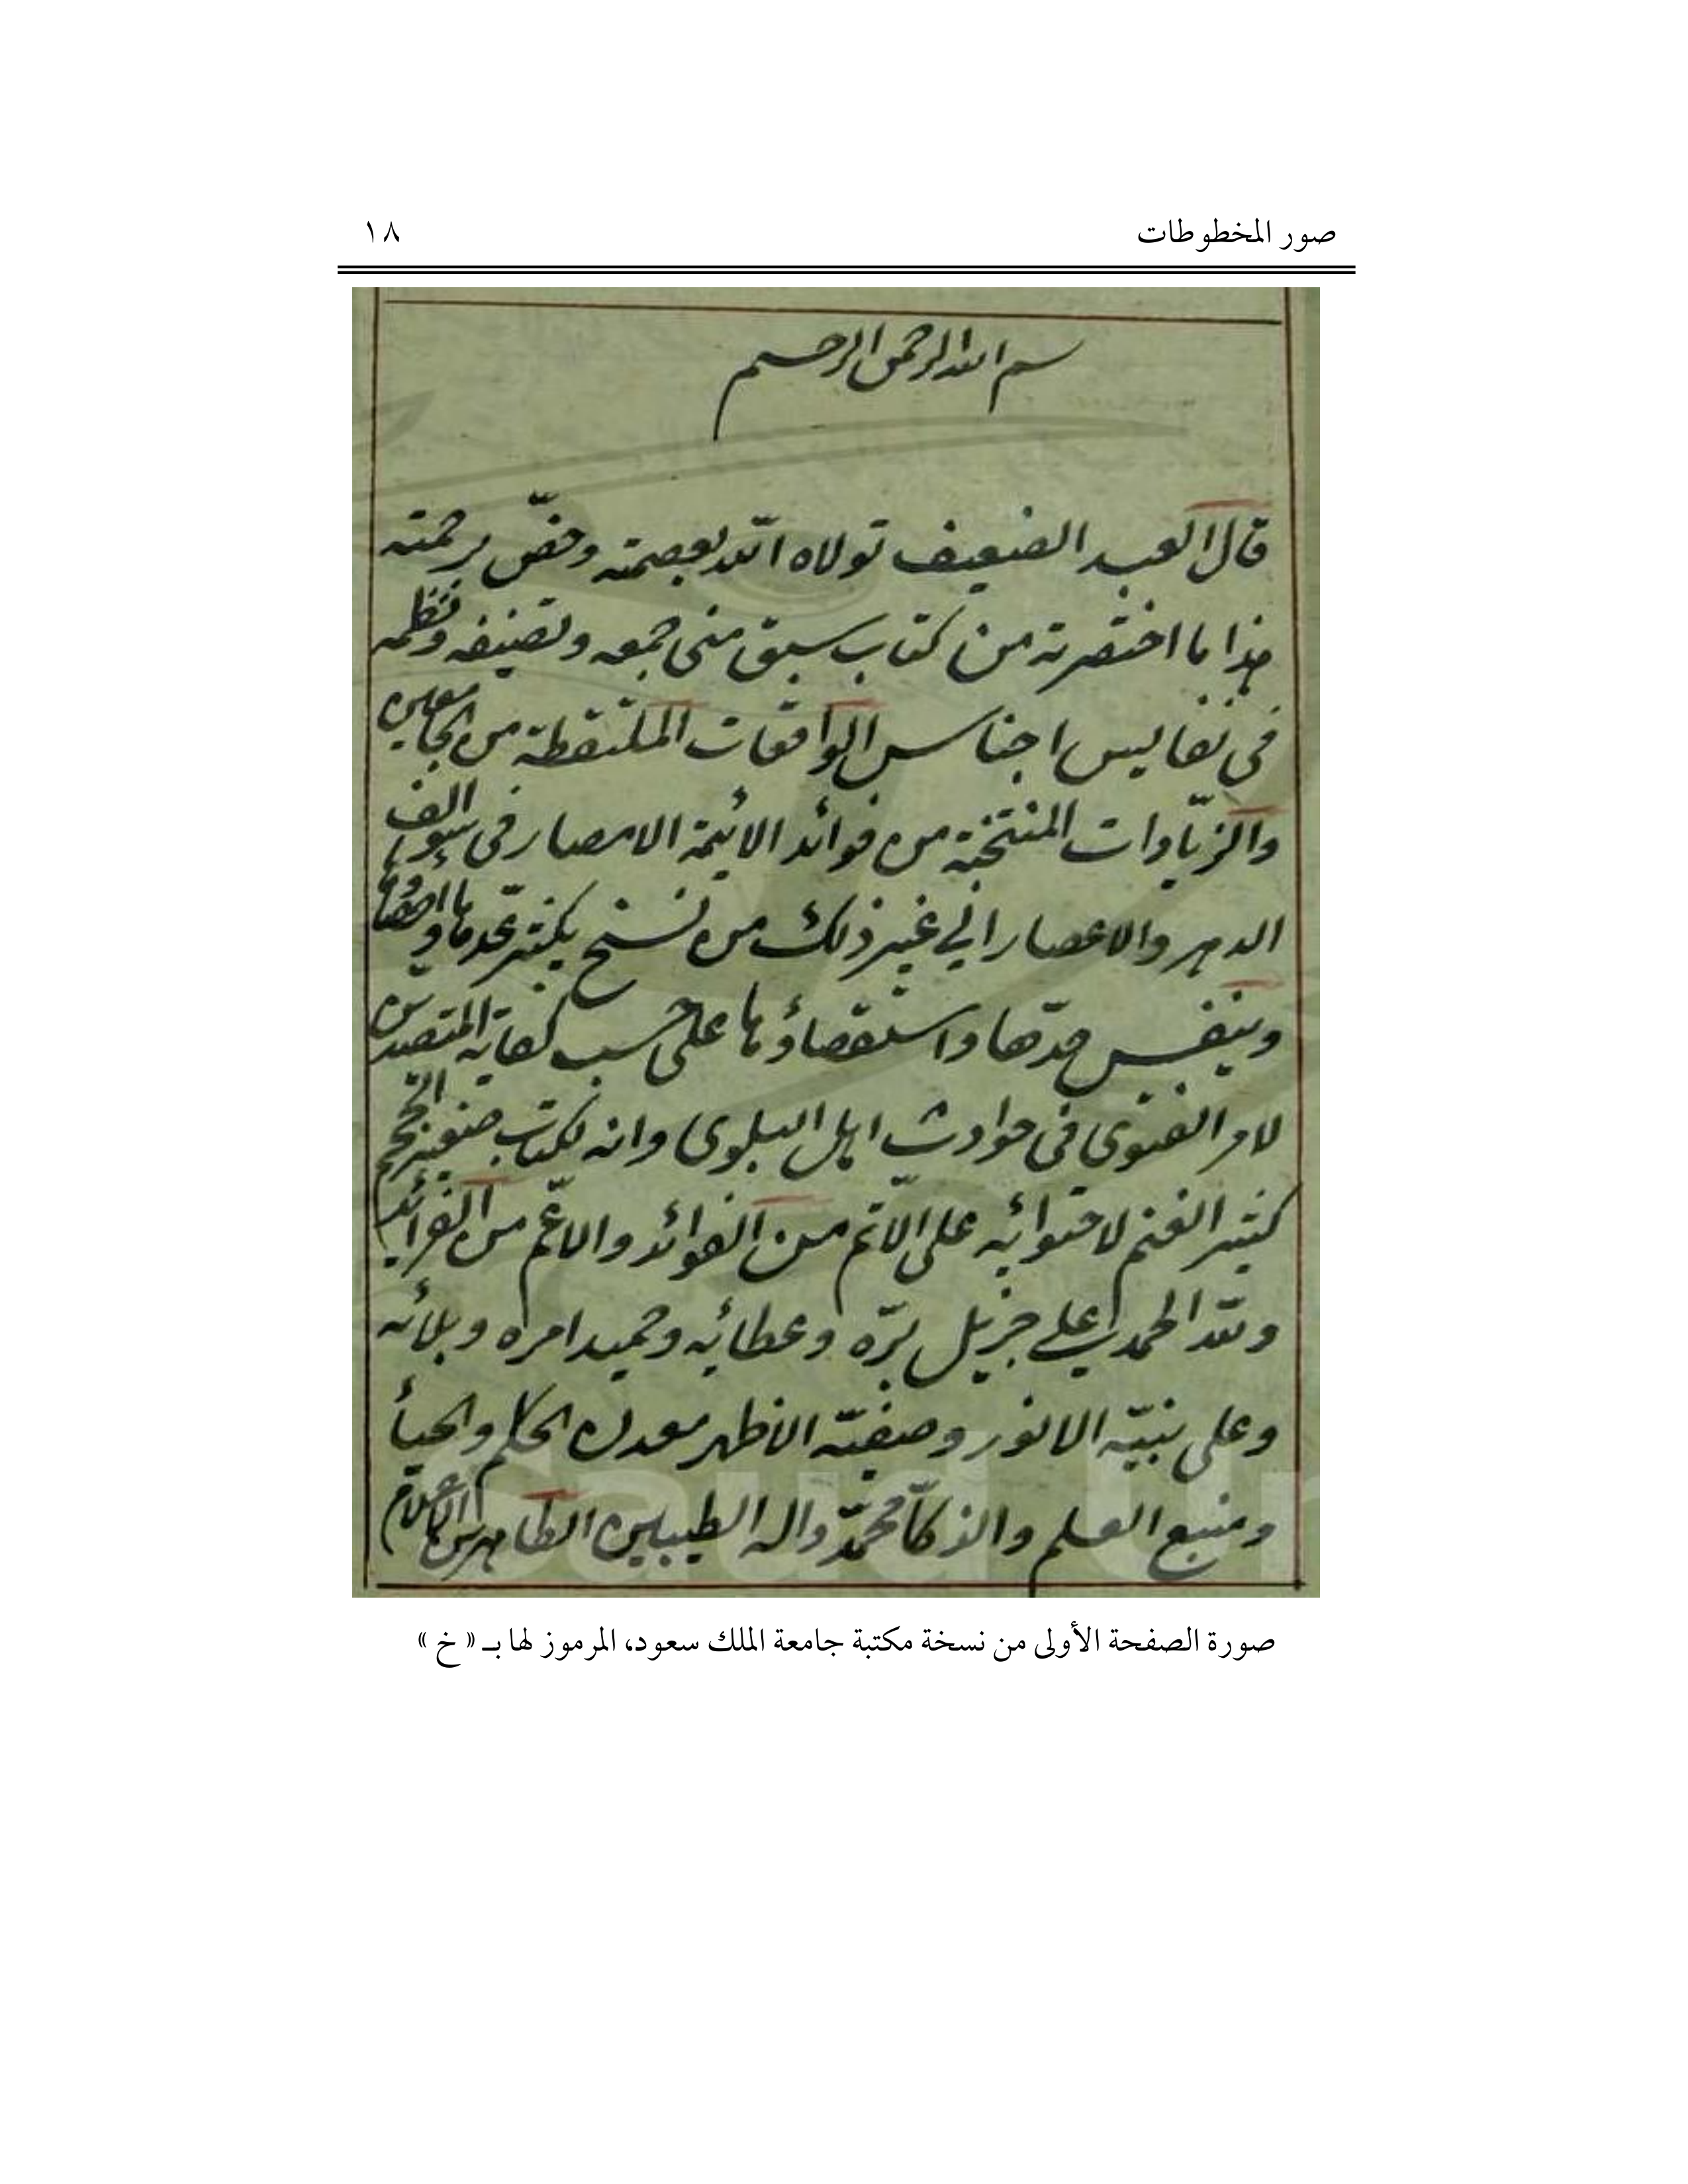 صور المخطوطات ١٨
بسم الله الرحمن الرحيم
قال العبد الضعيف تولاه الله بعصمته وخصّ برحمته
هذا ما اختصرته من كتاب سبق منى جمعه وتصنيفه ونظمه
فى نفايس اجناس الواقعات الملتقطة من
والزيادات المنتخبة من فوائد الائمة الامصار فى سوالف
الدهر والاعصار الي غير ذلك من نسخ يكثر عدها
وينفس مدّها واستقصاؤها على حسب كفاية المتصدين
لامر الفتوى فى حوادث اهل البلوى وانه لكتاب صغير الحجم
كثير الغنم لاحتوائه على الاتم من الفوائد والاعم من الفرائد
ولله الحمد علي جزيل برّه وعطائه وحميد امره وبلائه
وعلى نبيّه الانور وصفيّه الاطهر معدن الحلم والحيأ
ومنبع العلم والذكأ محمّد واله الطيبين الطاهرين
صورة الصفحة الأولى من نسخة مكتبة جامعة الملك سعود، المرموز لها بـ « خ »